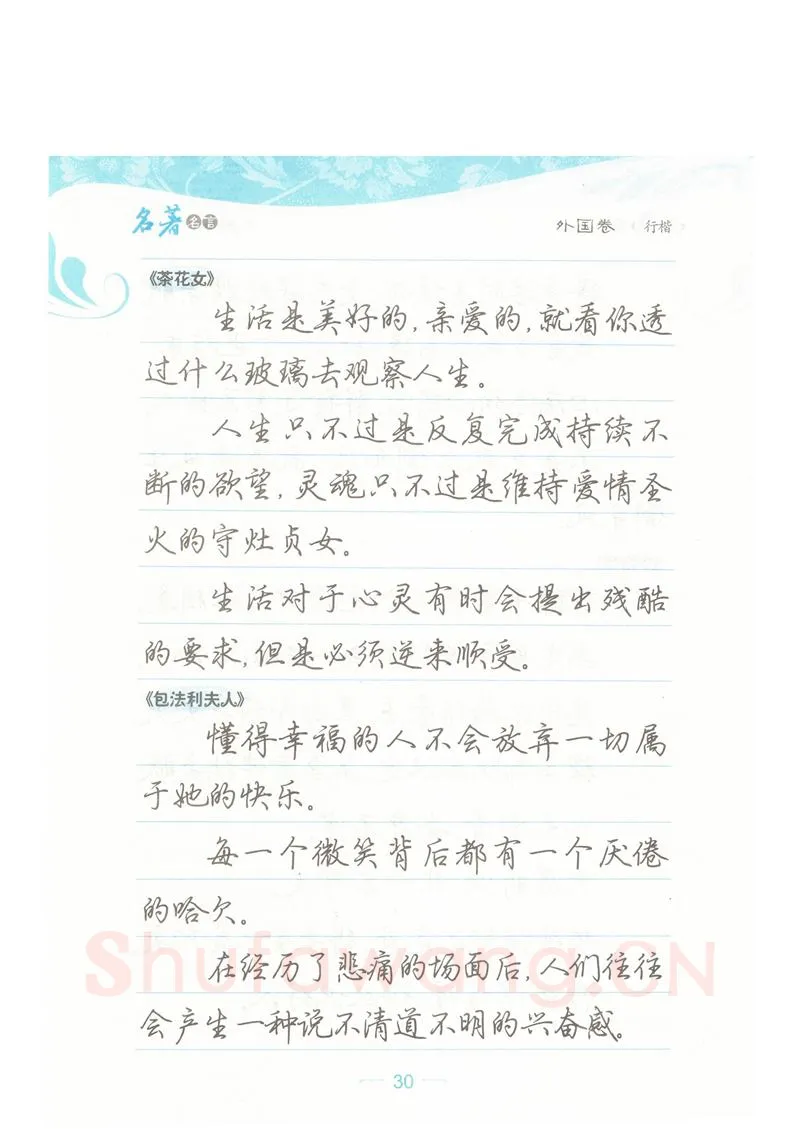 名著名言
外国卷（行楷）
《茶花女》
生活是美好的,亲爱的,就看你透
过什么玻璃去观察人生。
人生只不过是反复完成持续不
断的欲望,灵魂只不过是维持爱情圣
火的守灶贞女。
生活对于心灵有时会提出残酷
的要求,但是必须逆来顺受。
《包法利夫人》
懂得幸福的人不会放弃一切属
于她的快乐。
每一个微笑背后都有一个厌倦
的哈欠。
在经历了悲痛的场面后,人们往往
会产生一种说不清道不明的兴奋感。
Shufawang.CN
30